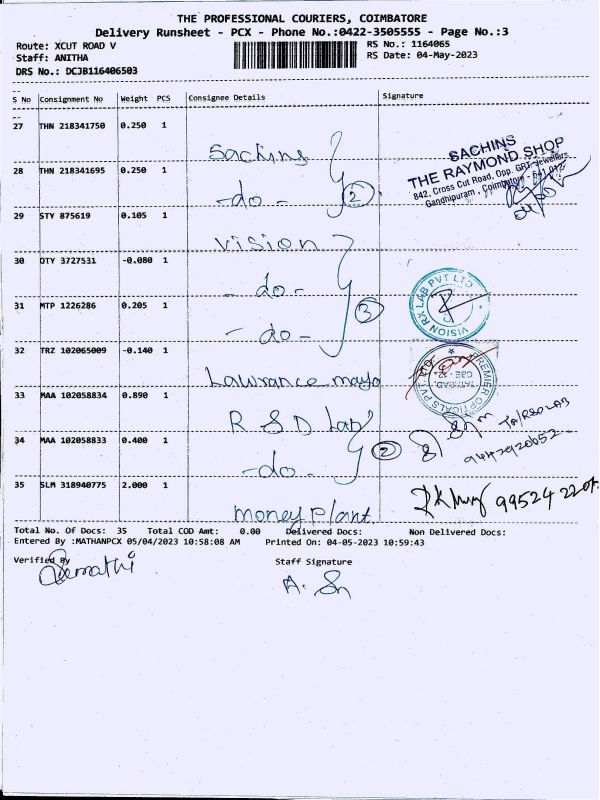 THE PROFESSIONAL COURIERS, COIMBATORE
Delivery Runsheet - PCX - Phone No.:0422-3505555 - Page No.:3
Route: XCUT ROAD V
RS No.: 1164065
Staff: ANITHA
RS Date: 04-May-2023
DRS No.: DCJB116406503
S No Consignment No Weight PCS Consignee Details Signature
27 THN 218341750 0.250 1
Sachins
SACHINS
THE RAYMOND SHOP
842, Cross Cut Road, Opp. GRT Jewellers
Gandhipuram, Coimbatore - 641 012
28 THN 218341695 0.250 1
-do- 2
29 STY 875619 0.105 1
Vision
30 OTY 3727531 -0.080 1
-do-
VISION RX LAB PVT LTD
31 MTP 1226286 0.205 1
-do- 3
32 TRZ 102065009 -0.140 1
Lawrance mayo
PREMIER OPTICALS PVT. LTD
TATABAD,
CBE - 12.
33 MAA 102058834 0.890 1
R S D Lab
34 MAA 102058833 0.400 1
-do- 2
35 SLM 318940775 2.000 1
money plant
Total No. Of Docs: 35 Total COD Amt: 0.00 Delivered Docs: Non Delivered Docs:
Entered By :MATHANPCX 05/04/2023 10:58:08 AM Printed On: 04-05-2023 10:59:43
Verified By
Staff Signature